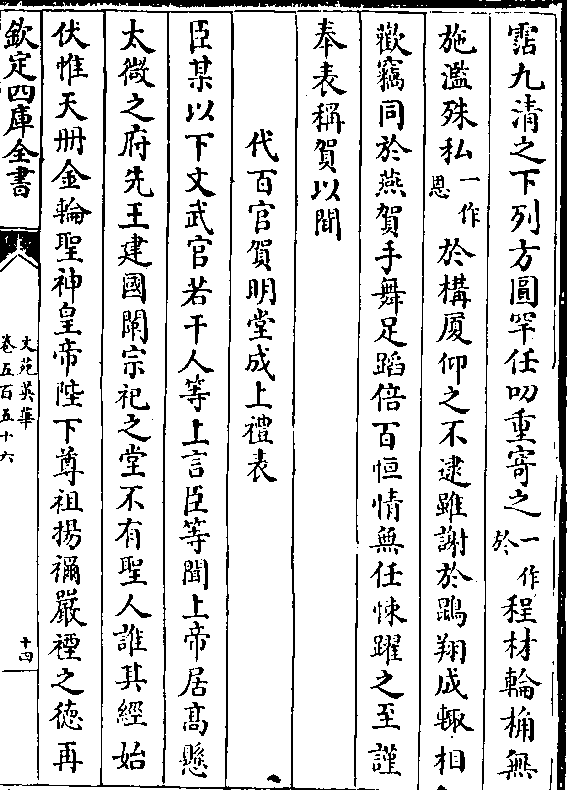 霑九清之下列方圓罕任叨重寄之一作於程材輪桷無
施濫殊私一作恩於構厦仰之不逮雖謝於鵾翔成輙相
歡竊同於燕賀手舞足蹈倍百恒情無任悚躍之至謹
奉表稱賀以聞
代百官賀明堂成上禮表
臣某以下文武官若干人等上言臣等聞上帝居高懸
太微之府先王建國闢宗祀之堂不有聖人誰其經始
伏惟天册金輪聖神皇帝陛下尊祖揚禰嚴禋之德再
欽定四庫全書
文苑英華
卷五百五十六
十四